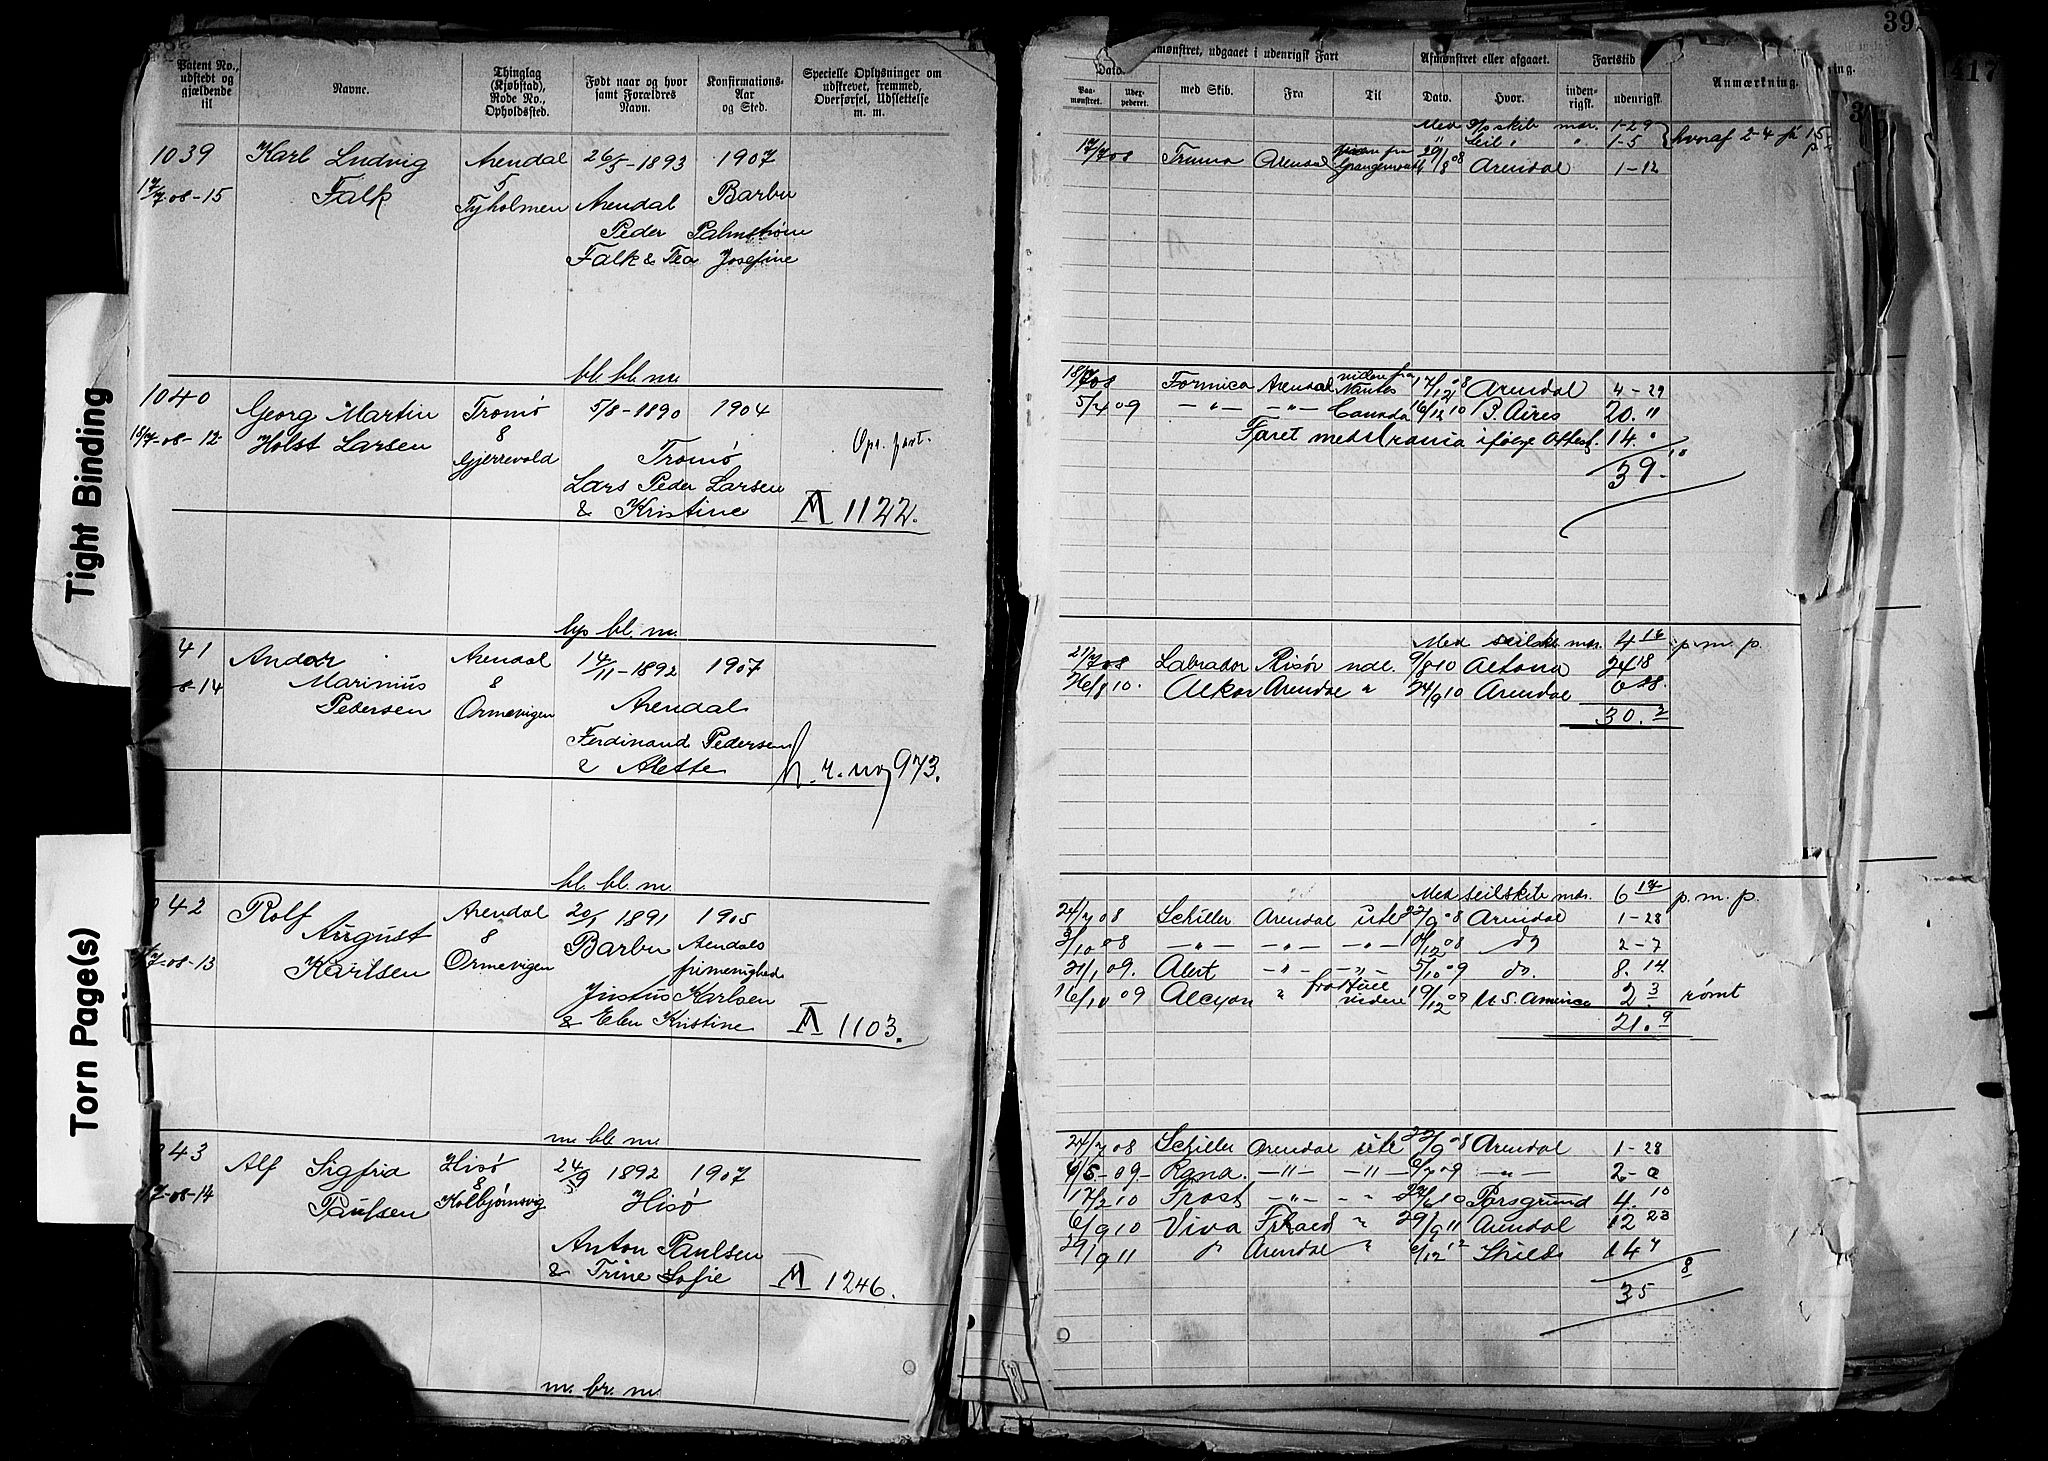 Tight Binding
Torn Page(s)
Patent No., udstedt og gjældende til
Navne.
Thinglag (Kjøbstad), Rode No., Opholdssted.
Født naar og hvor samt Forældres Navn.
Konfirmations-Aar og Sted.
Specielle Oplysninger om udskrevet, fremmed, Overførsel, Udslettelse m. m.
1039 Karl Ludvig Arendal 26/5-1893 1907
17/7-08-15 Falk 5 Tyholmen Arendal Barbu
Peder Palmstrøm
Falk & Tea Josefine
bl. bl. m.
1040 Georg Martin Tromø 5/8-1890 1904
-08-12 Holst Larsen 8 Gjerrevold Tromø
Lars Peder Larsen
& Kristine A 1122.
bl. m.
41 Andor Arendal 14/11-1892 1907
8-14 Marinius 8
Pedersen Ormevigen Arendal
Ferdinand Pedersen
& Alette 973.
bl. bl. m.
042 Rolf Arendal 20/1 1891 1905
7-08-13 August 8 Barbu Arendals
Karlsen Ormevigen frimenighed
Justus Karlsen
& Elen Kristine A 1103.
m. bl. m.
043 Alf Sigfrid Hisø 24/9 1892 1907
7-08-14 Paulsen 8 Kolbjørnsvig Hisø
Anton Paulsen
& Trine Sofie A 1246.
m. br. m.
39
417
mønstret, udgaaet i udenrigsk Fart
Afmønstret eller afgaaet.
Fartstid
Anmærkning.
Dato.
Paa-mønstret.
med Skib.
Fra
Til
Dato.
Hvor.
inden-rigsk.
udenrigsk
Med skib mdr. 1-29
Seil " " 1-5 hvoraf 2-4 på 15
17/7 08 Truma Arendal Grangemouth Arendal 1-12
18/7 08 Formica Arendal Nantes 17/12 08 Arendal 4-29
5/4 09 -"- -"- Canada 16/12 10 B. Aires 20. "
Faret med Urania ifølge Attest. 14.
39. 10
Med seilskib mdr. 4 16 p. m. p.
21/7 08 Labrador Risør udl. 9/8 10 Altona 24 18
26/8 10. Alkor Arendal " 24/9 10 Arendal 0 28.
30. 2
Med seilskib mdr. 6 17 p. m. p.
24/7 08 Schiller Arendal utl 22/9 08 Arendal 1-28
3/10 08 -"- -"- -"- 10/12 08 do 2-7
21/1 09. Alert -"- -"- 5/10 09 do. 8. 14.
16/10 09 Alcyon " 19/12 09 U. S. America 2 3 rømt
21. 9
24/7 08 Schiller Arendal utl 22/9 08 Arendal 1-28
6/5-09 Rana. -"- -"- 6/7 09 -"- 2-0
17/2 10 Frost -"- -"- 27/6 10 Porsgrund 4. 10
6/9 10 Viva " 29/9 11 Arendal 12 23
29/9 11 " Arendal " 6/12 12 Shields 14 7
35 8